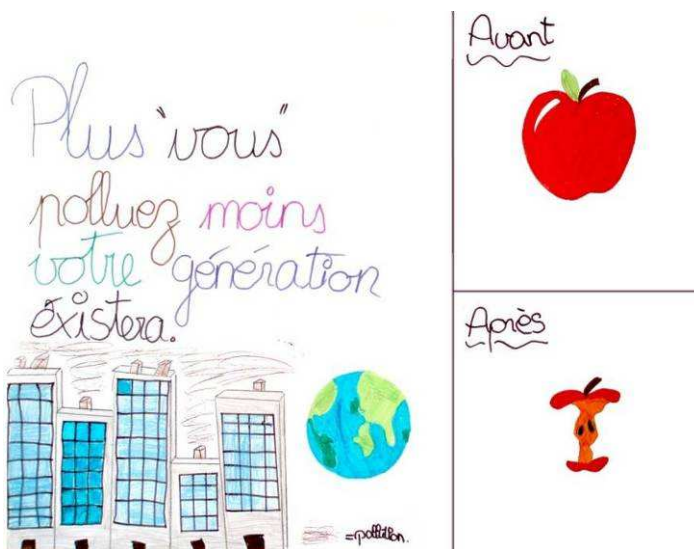 Plus "vous"
polluez moins
votre génération
éxistera.
=pollution.
Avant
Après